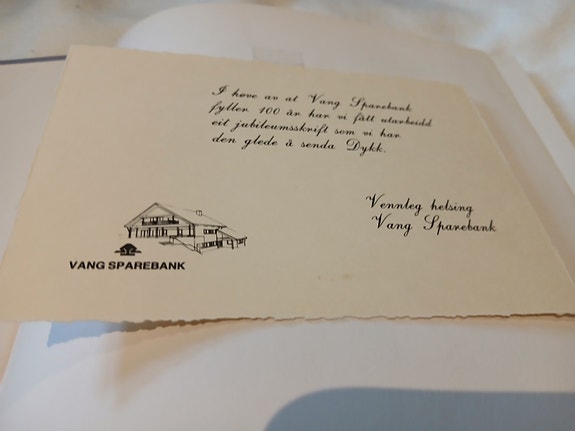 I høve av at Vang Sparebank
fyller 100 år har vi fått utarbeidd
eit jubileumsskrift som vi har
den glede å senda Dykk.
Vennleg helsing
Vang Sparebank
VANG SPAREBANK